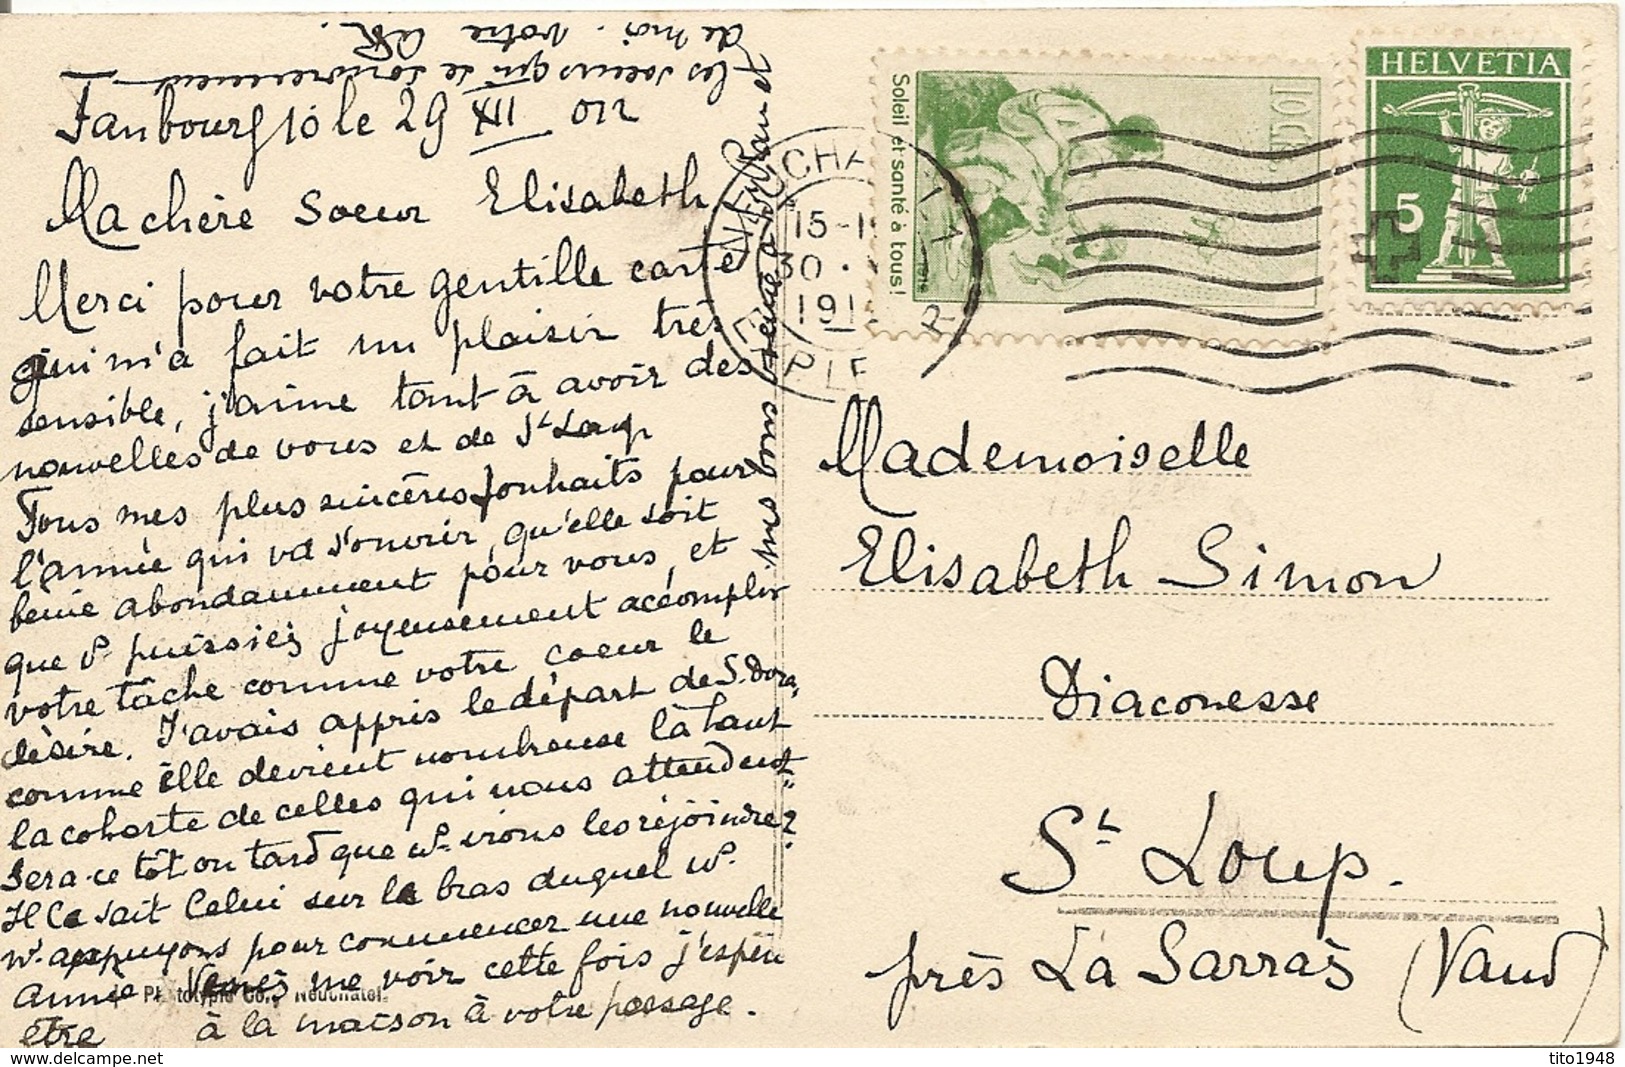 Faubourg 10 le 29 XII 012
Ma chère Soeur Elisabeth
Merci pour votre gentille carte
qui m'a fait un plaisir très
sensible, j'aime tant à avoir des
nouvelles de vous et de St Loup
Tous mes plus sincères souhaits pour
l'année qui va s'ouvrir, qu'elle soit
benie abondamment pour vous, et
que v. puissiez joyeusement accomplir
votre tâche comme votre coeur le
désire. J'avais appris le départ de S. Dora,
comme elle devient nombreuse là haut
la cohorte de celles qui nous attendent
Sera-ce tôt ou tard que n. irons les rejoindre?
Il Le sait Celui sur le bras duquel n.
n. appuyons pour commencer une nouvelle
année Venez me voir cette fois j'espère
être à la maison à votre passage.
mes bons
les soeurs qui se souviennent
de moi. Votre
Phototypie Co., Neuchatel.
Soleil et santé à tous!
10 c.
HELVETIA
5
NEUCHATEL
15-1
30.
191
Mademoiselle
Elisabeth Simon
Diaconesse
St Loup.
près La Sarraz (Vaud)
tito1948